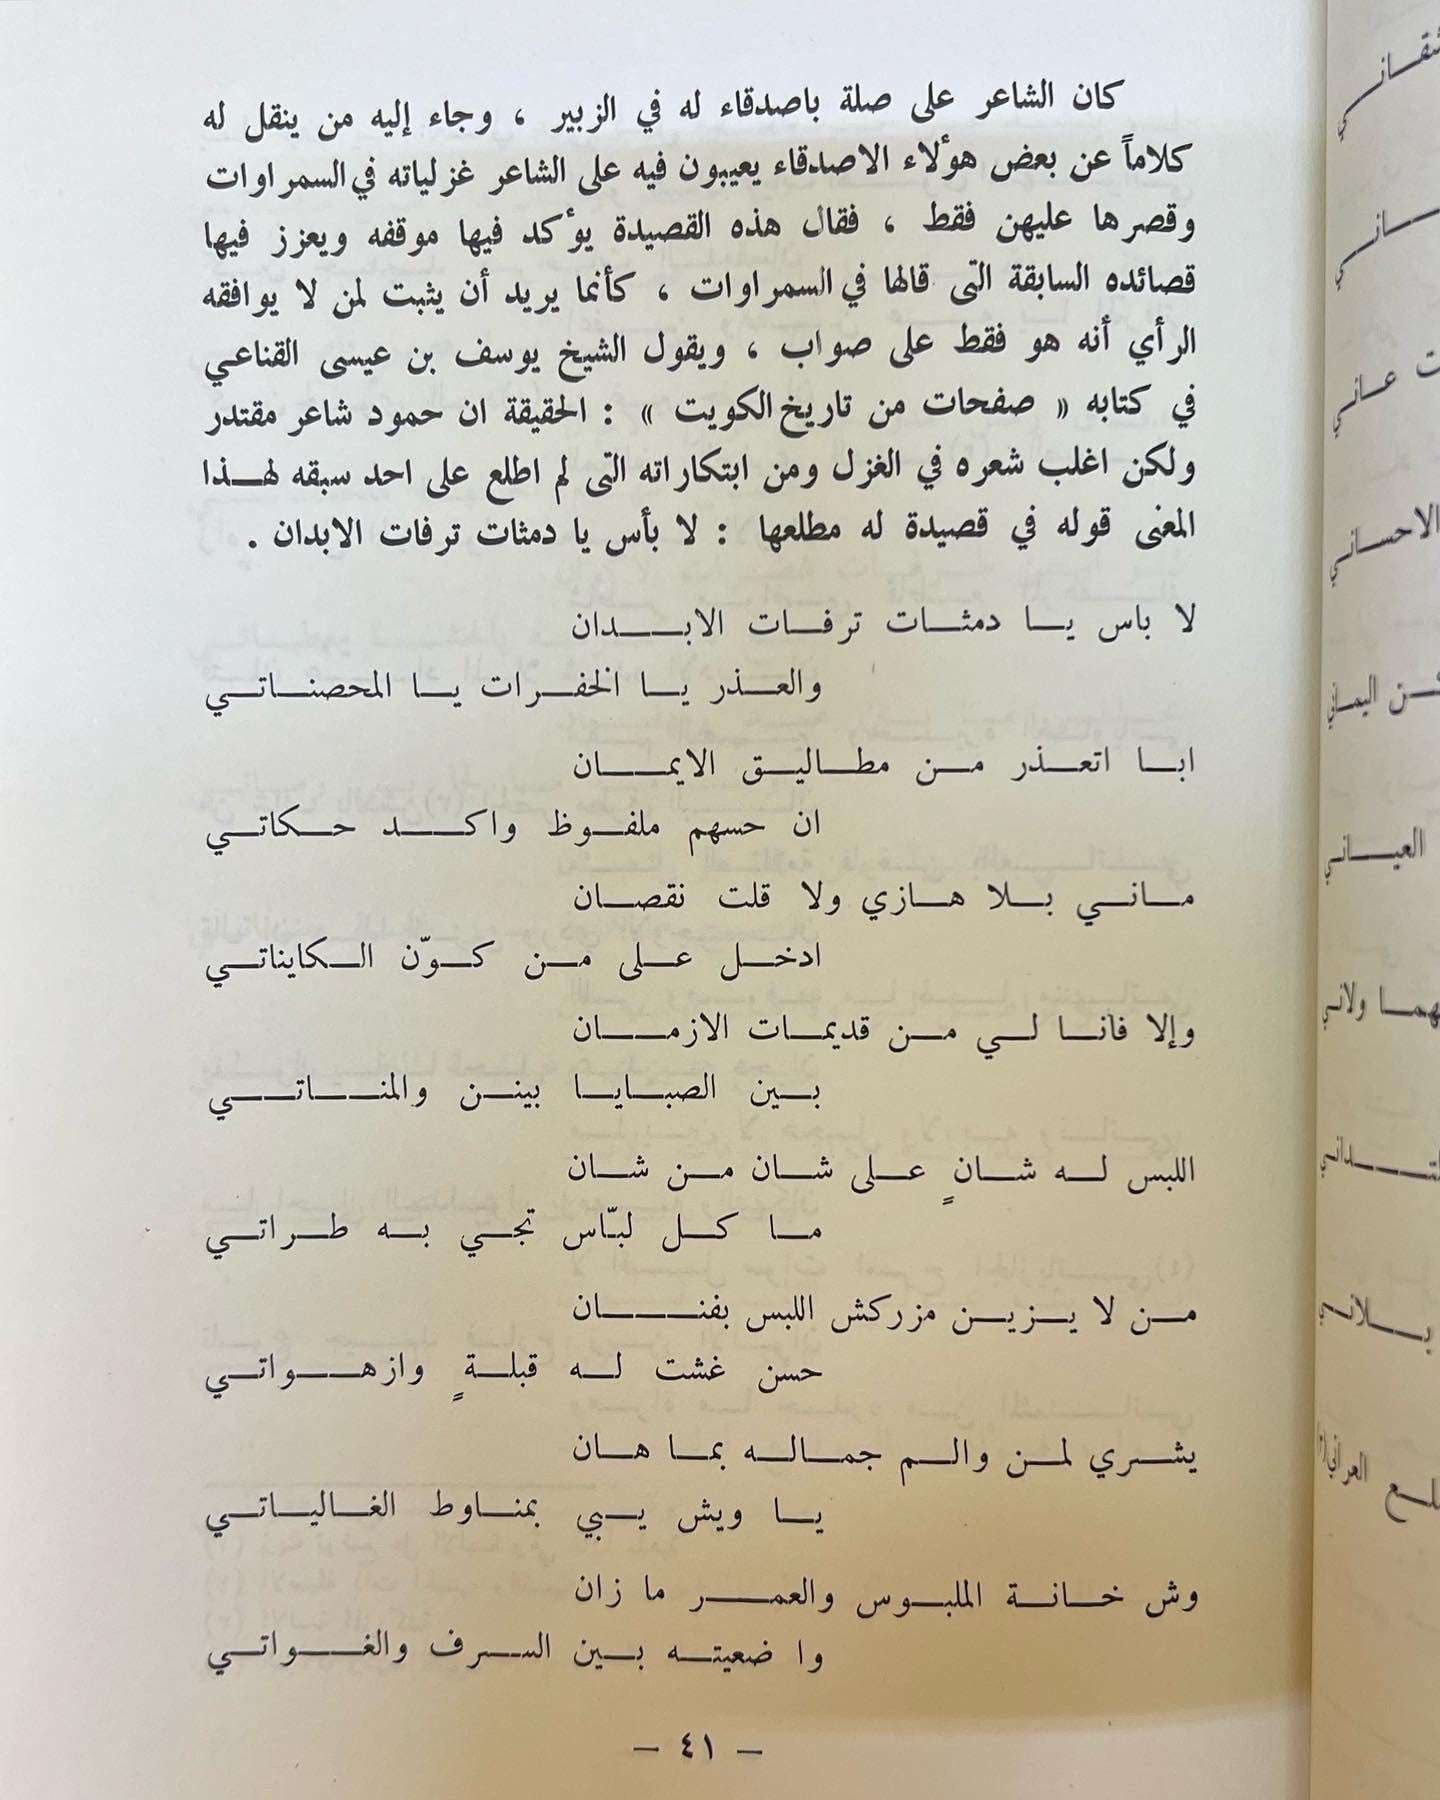 كان الشاعر على صلة باصدقاء له في الزبير ، وجاء إليه من ينقل له
كلاماً عن بعض هوٴلاء الاصدقاء يعيبون فيه على الشاعر غزلياته في السمراوات
وقصرها عليهن فقط ، فقال هذه القصيدة يوٴكد فيها موقفه ويعزز فيها
قصائده السابقة التى قالها في السمراوات ، كأنما يريد أن يثبت لمن لا يوافقه
الرأي أنه هو فقط على صواب ، ويقول الشيخ يوسف بن عيسى القناعي
في كتابه « صفحات من تاريخ الكويت » : الحقيقة ان حمود شاعر مقتدر
ولكن اغلب شعره في الغزل ومن ابتكاراته التى لم اطلع على احد سبقه لهذا
المعنى قوله في قصيدة له مطلعها : لا بأس يا دمثات ترفات الابدان .
لا باس يا دمثات ترفات الابدان
والعذر يا الخفرات يا المحصناتي
ابا اتعذر من مطاليق الايمان
ان حسهم ملفوظ واكد حكاتي
ماني بلا هازي ولا قلت نقصان
ادخل على من كوّن الكايناتي
وإلا فانا لي من قديمات الازمان
بين الصبايا بينن والمناتي
اللبس له شانٍ على شان من شان
ما كل لبّاس تجي به طراتي
من لا يزين مزركش اللبس بفنان
حسن غشت له قبلةٍ وازهواتي
يشري لمن والم جماله بما هان
يا ويش يبي بمناوط الغالياتي
وش خانة الملبوس والعمر ما زان
وا ضعيته بين السرف والغواتي
— ٤١ —
شقاني
ساني
ت عاني
الاحساني
ـن اليماني
العياني
هما ولاني
ـتداني
بلاني
ـلع العراني